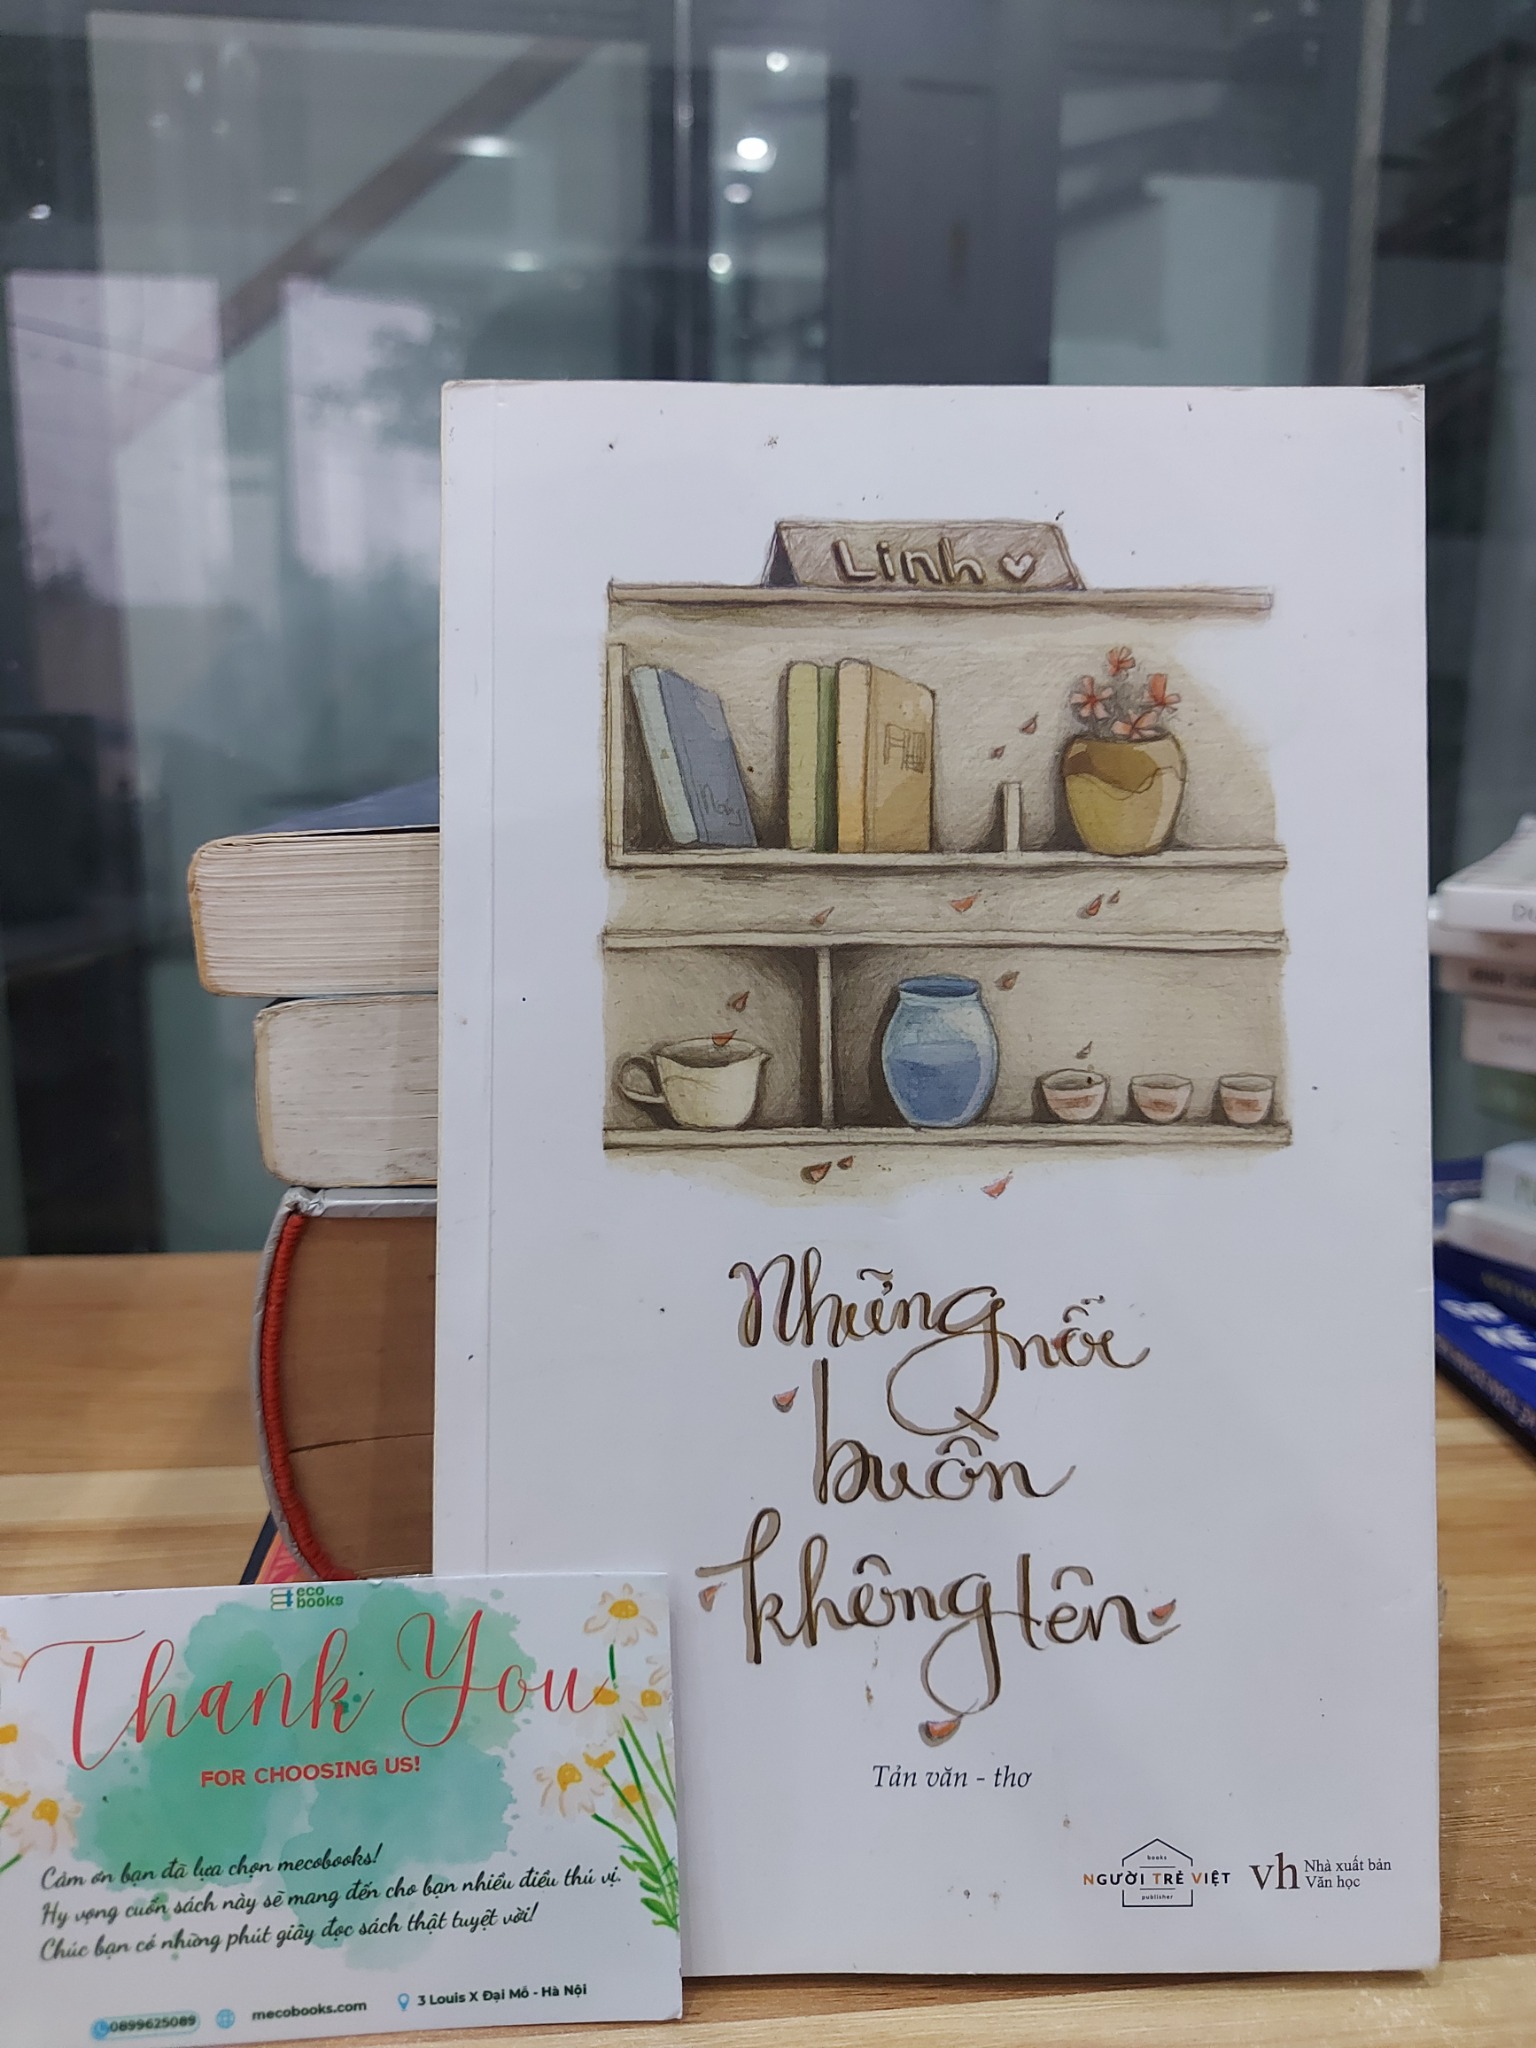 Linh
Những nỗi
buồn
không tên
Tản văn - thơ
books
NGƯỜI TRẺ VIỆT
publisher
vh Nhà xuất bản
Văn học
eco
books
Thank You
FOR CHOOSING US!
Cảm ơn bạn đã lựa chọn mecobooks!
Hy vọng cuốn sách này sẽ mang đến cho bạn nhiều điều thú vị.
Chúc bạn có những phút giây đọc sách thật tuyệt vời!
0899625089 mecobooks.com 3 Louis X Đại Mỗ - Hà Nội